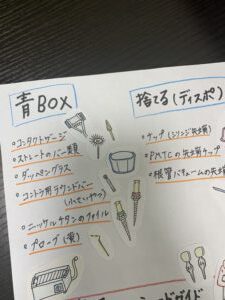 青BOX
捨てる(ディスポ)
・コンタクトゲージ
・ストレートのバー類
・ダッペングラス
・コントラ用ラウンドバー
(小さいやつ)
・ニッケルチタンのファイル
・プローブ(黄)
・チップ(シリンジ先端)
・PMTCの先端チップ
・根管バキュームの先端